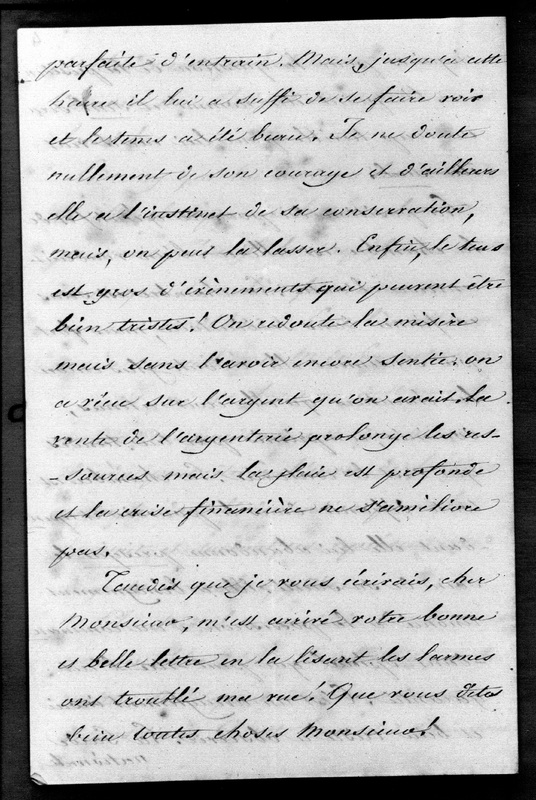 parfaite d'entrain. Mais, jusqu'à cette
heure il lui a suffi de se faire voir
et le tems a été beau. Je ne doute
nullement de son courage et d'ailleurs
elle a l'instinct de sa conservation,
mais, on peut la lasser. Enfin, le tems
est gros d'évènements qui peuvent être
bien tristes! On redoute la misère
mais sans l'avoir encore sentie. on
a vécu sur l'argent qu'on avait. La
vente de l'argenterie prolonge les res-
-sources mais la plaie est profonde
et la crise financière ne s'améliore
pas.
Tandis que je vous écrivais, cher
Monsieur, m'est arrivé votre bonne
et belle lettre en la lisant les larmes
ont troublé ma vue! Que vous dites
bien toutes choses Monsieur!